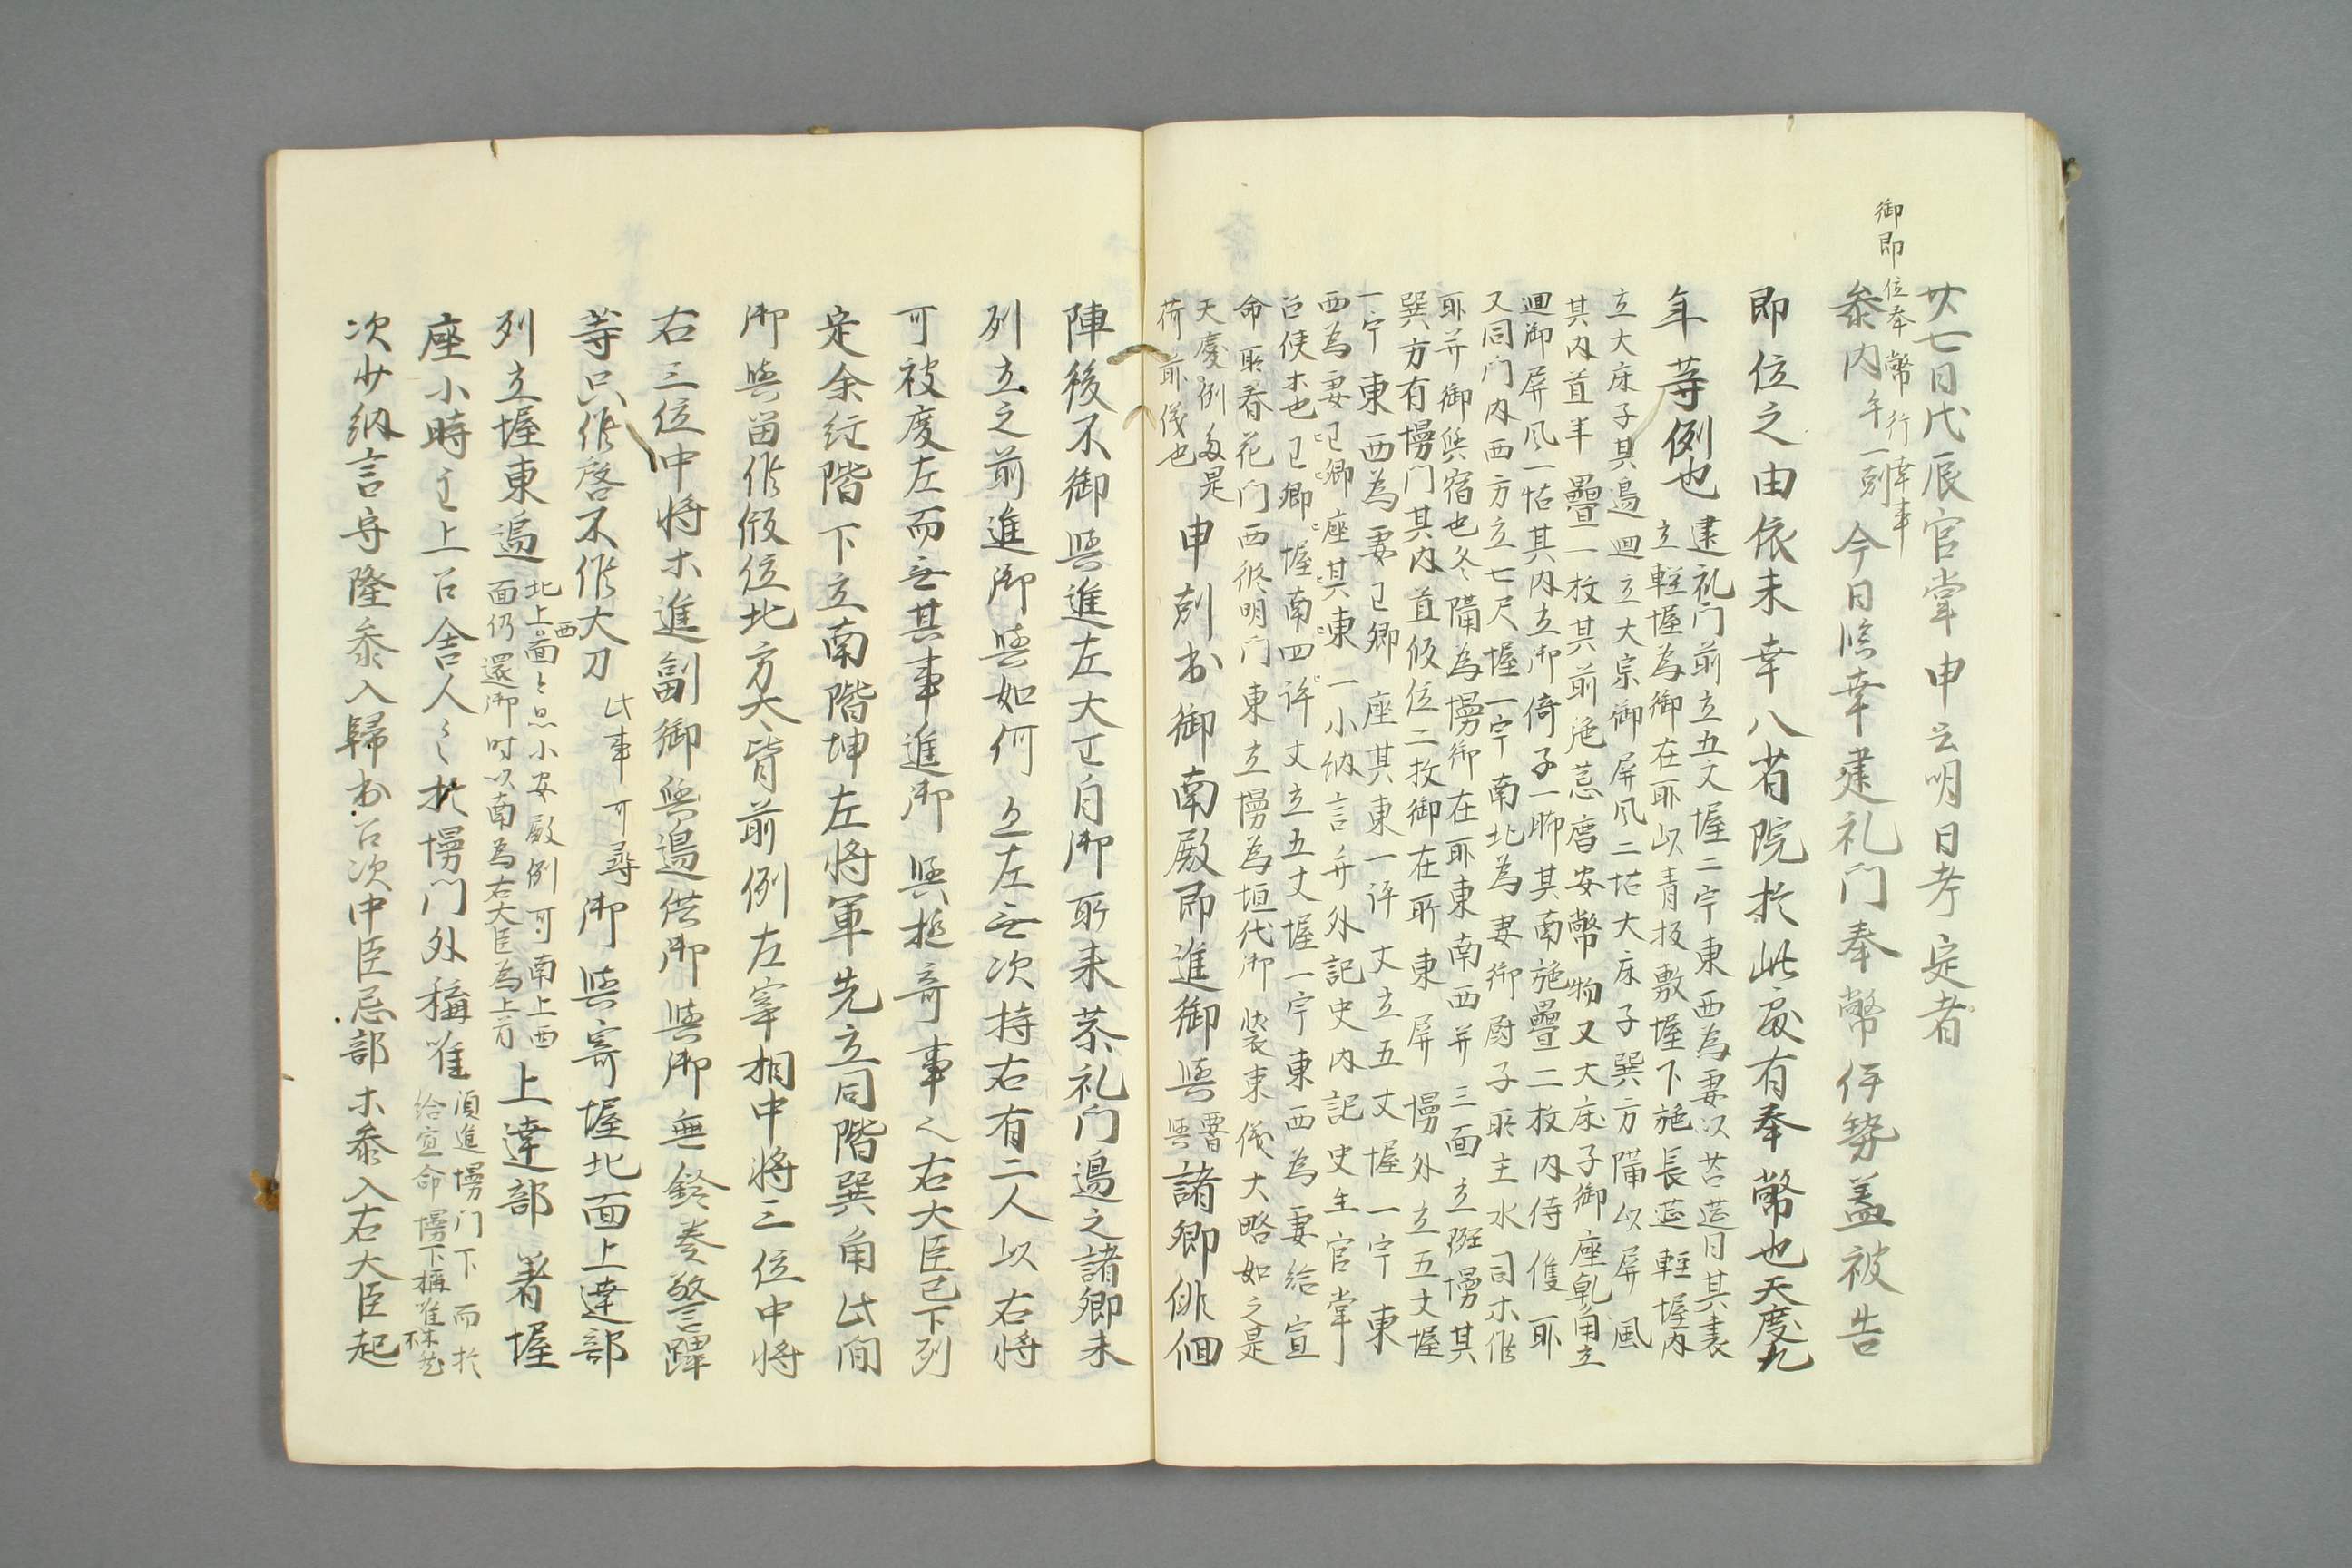 御即位奉幣行幸事
廿七日代辰官掌申云明日考定者
参内午一剋今日臨幸建礼門奉幣伊勢盖被告
即位之由依未幸八省院於此處有奉幣也天慶九
年等例也
建礼門前立五丈幄二宇東西為妻以苫莚曰其裏
立軽幄為御在所以青板敷幄下施長莚軽幄内
立大床子其邊廻立大宗御屏風二帖大床子巽方隔以屏風
其内首半疊一枚其前施葱唐安幣物又大床子御座乹角立
廻御屏風一帖其内立御倚子一脚其南施疊二枚内侍隻所
又同門内西方立七尺幄一宇南北為妻御厨子所主水司ホ供
所并御輿宿也冬隔為幔御在所東南西并三面立斑幔其
巽方有幔門其内首仮位二枚御在所東屏幔外立五丈幄
一宇東西為妻已卿座其東一许丈立五丈幄一宇東
西為妻已卿座其東一小納言并外記史内記史生官掌
召使ホ也已卿幄南四许丈立五丈幄一宇東西為妻給宣
命所春花門西修明門東立幔為垣代御装束儀大略如之是
天慶例多是
荷前儀也
申剋出御南殿即進御輿
要輿
諸卿俳徊
陣後不御輿進左大臣自御所来恭礼門邊之諸卿未
列立之前進御輿如何立左之次持右有二人以右将
可被度左而之其事進御輿挺奇事之右大臣已下列
定余行階下立南階坤左将軍先立同階巽角此间
御輿留供仮位北方大皆前例左宰相中将三位中将
右三位中将ホ進副御輿邊供御輿御無鈴奏警蹕
等只供啓不供大刀
此事可尋
御輿寄幄北面上達部
列立幄東邉
北上西面是小安殿例可南上西
面仍還御时以南為右大臣為上首
上達部著幄
座小時之上召舎人々於幔門外稱唯
須進幔門下而於
給宣命幔下稱唯
次少納言守隆参入歸出召次中臣忌部ホ参入右大臣起